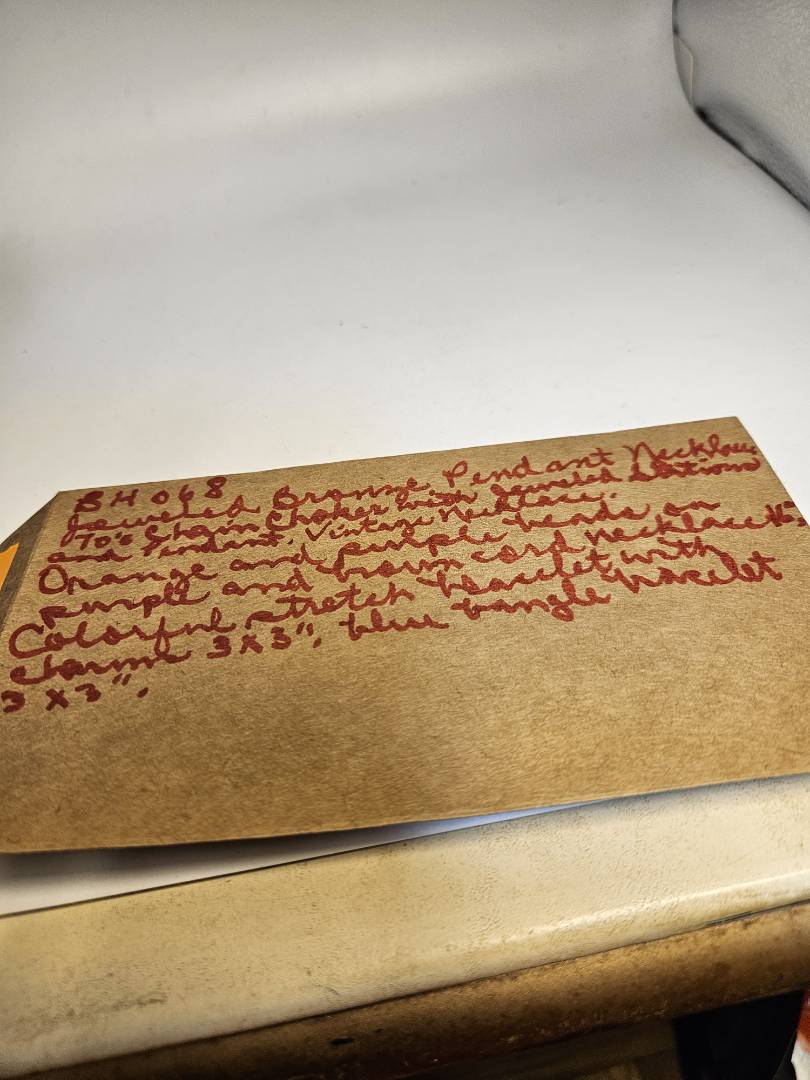 BH 068
Jeweled Bronze Pendant Necklace
70's Chain Choker with Jeweled Stations
and Pendant. Vintage Necklace.
Orange and purple beads on
purple and brown cord necklace
Colorful stretch bracelet with
charms 3x3", blue bangle bracelet
3x3".